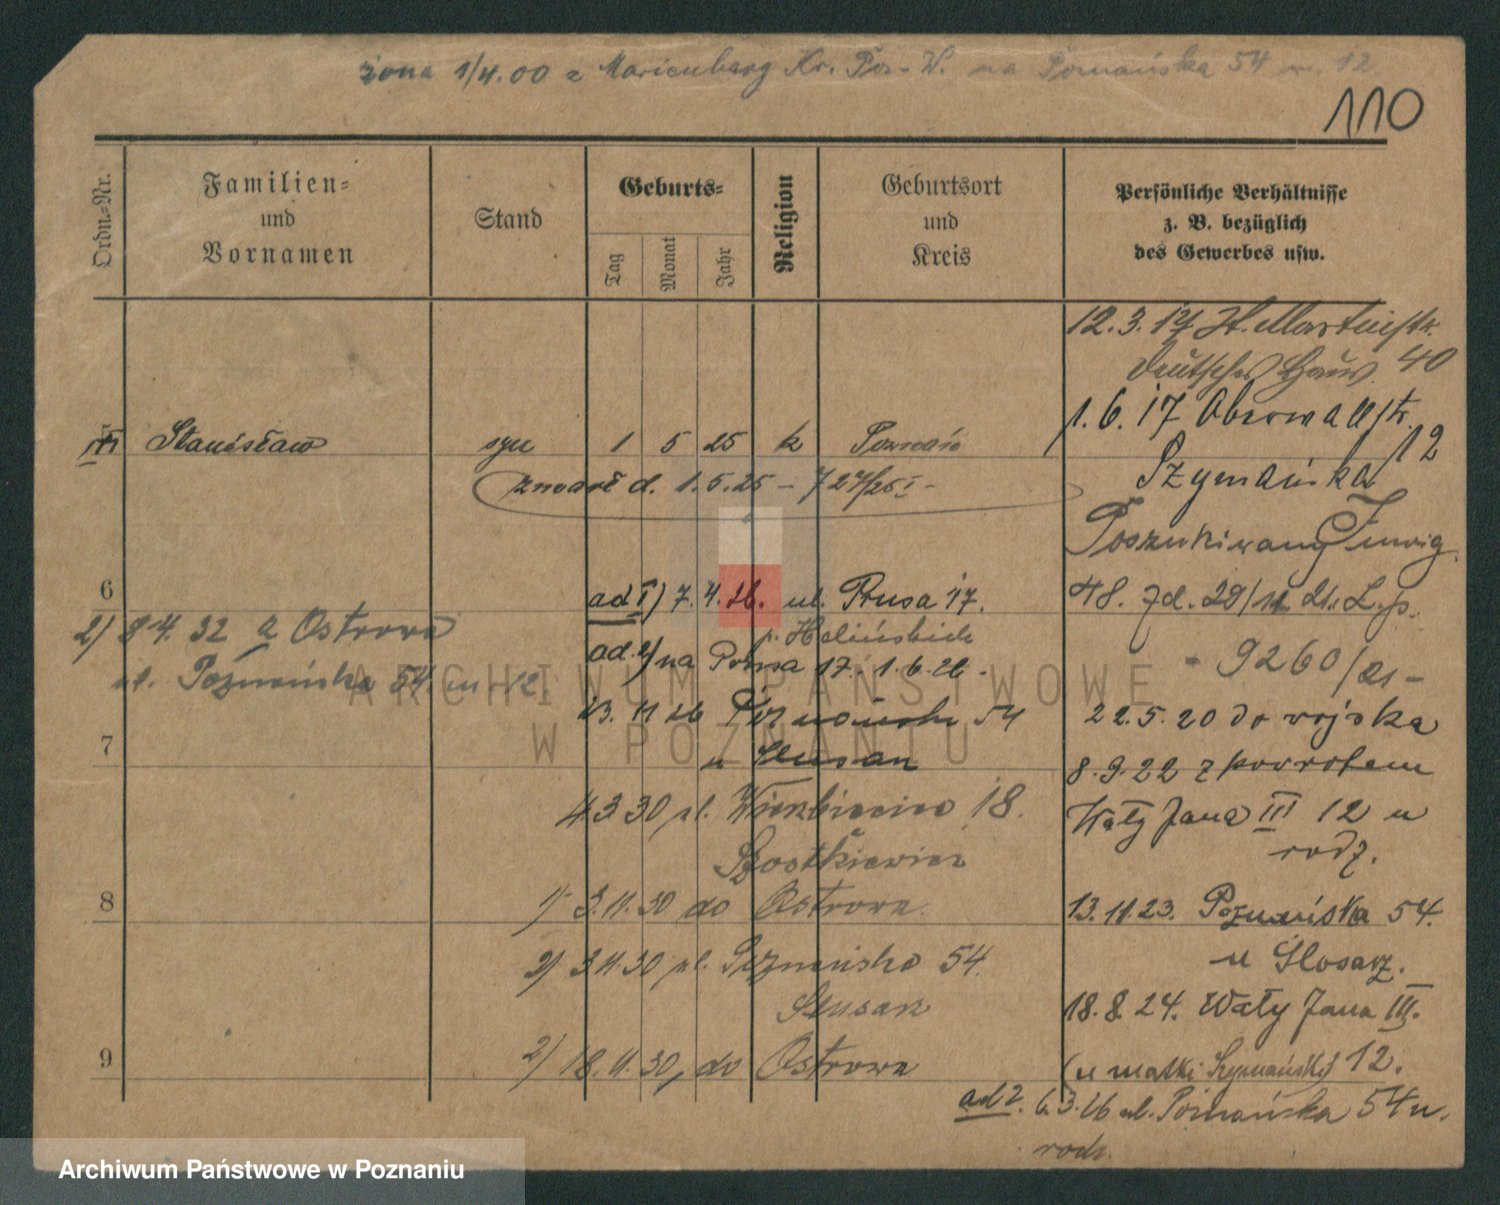 żona 1/4.00 z Marienberg Kr. Pos-W. na Poznańska 54 m. 12
110
Ordn.-Nr.
Familien-
und
Vornamen
Stand
Geburts-
Tag
Monat
Jahr
Religion
Geburtsort
und
Kreis
Persönliche Verhältnisse
z. B. bezüglich
des Gewerbes usw.
12.3.17 St. Martinstr.
Deutsches Haus 40
1.6.17 Oberwallstr.
12
Stanisław syn 1 5 25 k Poznań
Szymańska
zmarł d. 1.5.25 - 727/25 I -
Poszukiwany
6
ad I) 7.4.26. ul. Prusa 17.
48.
2) 9 4. 32 z Ostrowa
p. Helińskich
ad. 2) na Prusa 17. 1.6.26 -
9260/21 -
ul. Poznańska 54. m 12
23. 11 26 Poznańska 54
22.5.20 do wojska
7
u Slusarz
8.9.22 z powrotem
4 3 30 ul. Wierzbięcice 18.
Wały Jana III 12 u
rodz.
Szostkiewicz
8
1) 3.11.30 do Ostrowa.
13.11.23. Poznańska 54.
u Slosarz.
2) 3.11.30 ul. Poznańska 54.
Slusarz
18.8.24. Wały Jana III.
9
2) 18.11.30, do Ostrowa
(u matki Szymańskiej 12.
ad 2. 6.3.26 ul. Poznańska 54 u.
rodz.
ARCHIWUM PAŃSTWOWE
W POZNANIU
Archiwum Państwowe w Poznaniu